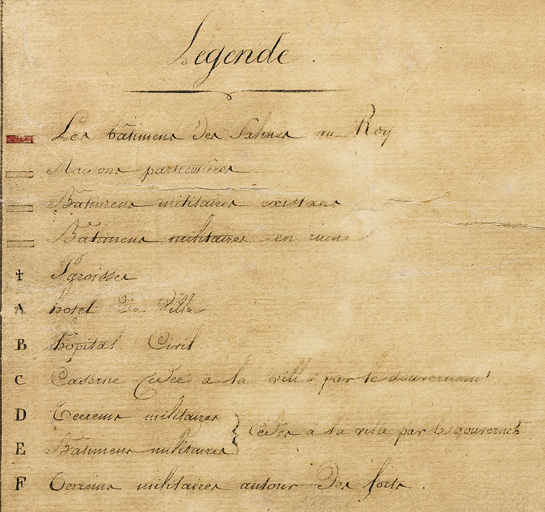 Legende.
Les bâtimens des Salines au Roy
Maisons particulières
Bâtimens militaires existans
Bâtimens militaires en ruine
✝ Paroisse
A hotel de Ville
B hôpital Civil
C Caserne Cedée a la ville par le gouvernemt
D Terreins militaires
E Bâtimens militaires } Cédés a la ville par le gouvernemt
F Terreins militaires autour des forts.